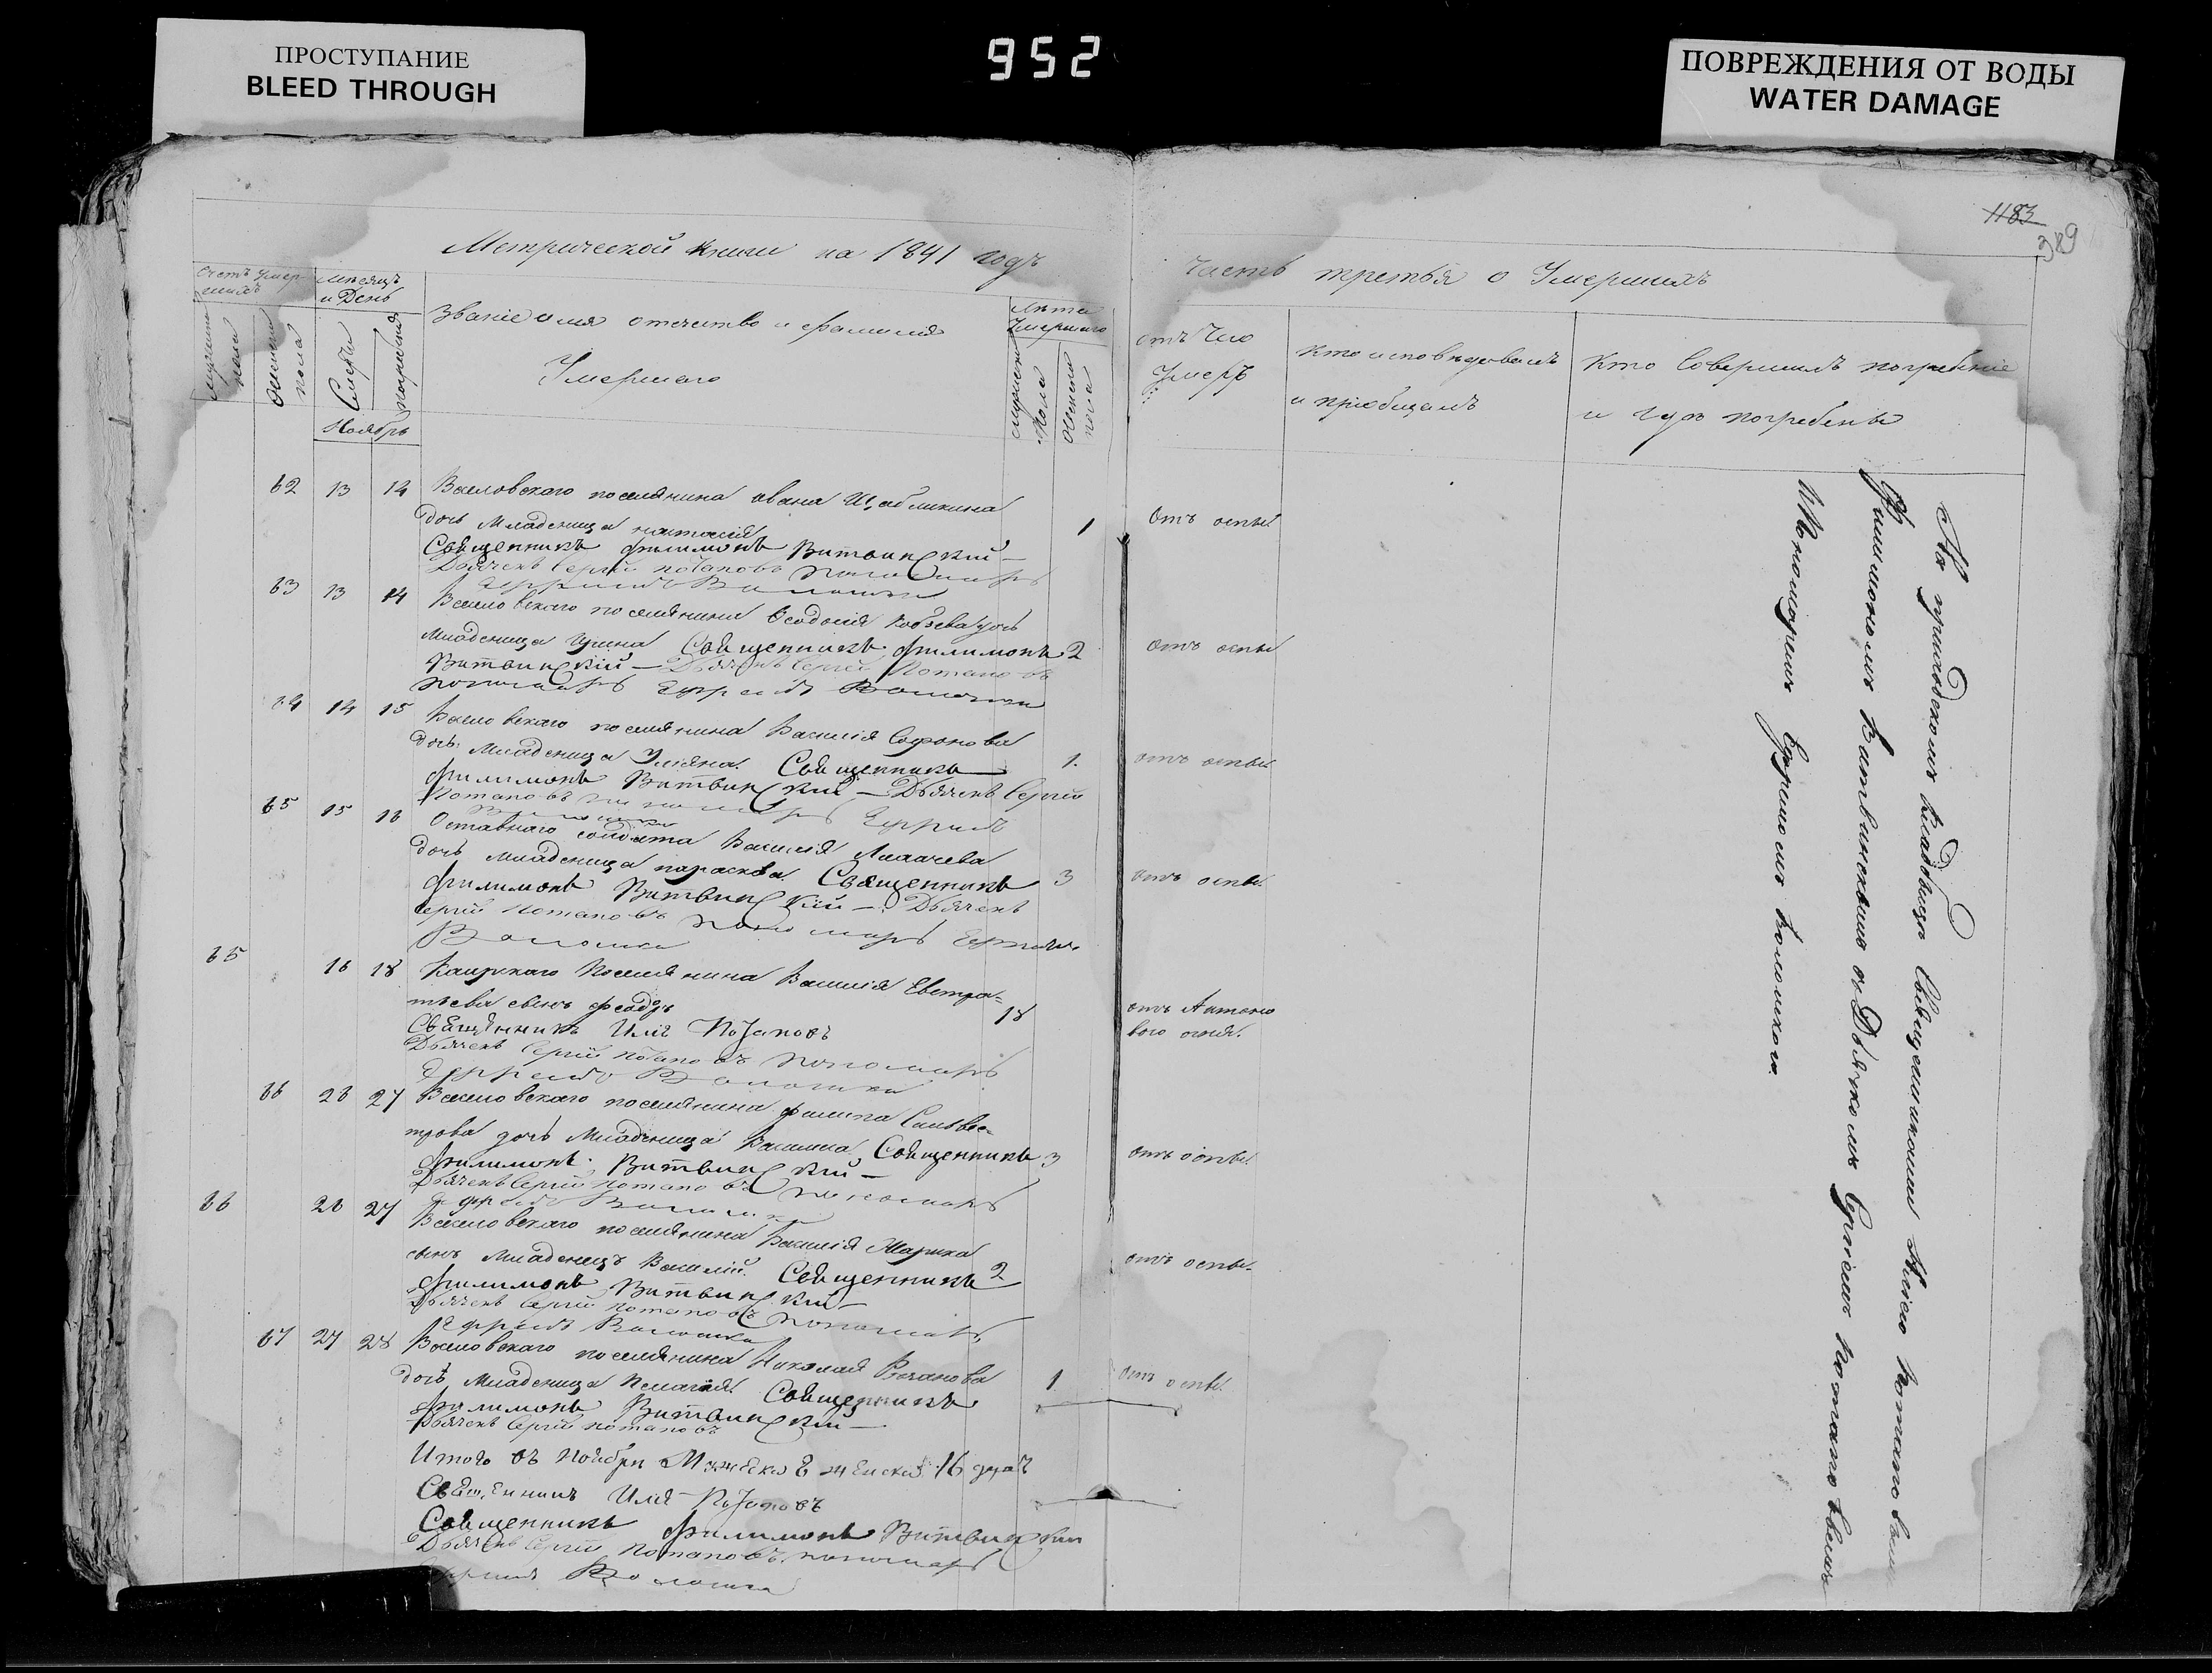 ПРОСТУПАНИЕ
BLEED THROUGH
952
ПОВРЕЖДЕНИЯ ОТ ВОДЫ
WATER DAMAGE
1183
389
Метрической книги на 1841 годъ
часть третья о Умершихъ
Счетъ умер-
шихъ
Мѣсяцъ
и День
Званіе имя отечество и фамилія
Умершаго
Лѣта
Умершаго
мужеска
пола
женска
пола
Смерти
погребенія
мужеска
пола
женска
пола
отъ чего
умеръ
кто исповѣдовалъ
и пріобщалъ
Кто Совершилъ погребеніе
и гдѣ погребены
Ноябрь
62 13 14 поселянина ивана
дочь Младеница 1 отъ оспы
Священникъ филимонъ Витвинскій
Дьячекъ Сергій Потаповъ пономарь
63 13 14 поселянина дочь
Младеница Ирина Священникъ филимонъ 2 отъ оспы
Витвинскій Дьячекъ Сергій Потаповъ
пономарь Ефремъ Волошка
64 14 15 поселянина Василія Софонова
дочь Младеница Уліяна Священникъ 1. отъ оспы
филимонъ Витвинскій Дьячекъ Сергій
Потаповъ пономарь Ефремъ
65 15 16 Отставнаго солдата Василія Лихачева
дочь младеница параскева Священникъ 3 отъ оспы
филимонъ Витвинскій Дьячекъ
Сергій Потаповъ пономарь Ефремъ
Волошка
65 16 18 Каирскаго Поселянина Василія Евстра-
тіева сынъ феодоръ 18 отъ Антоно
ваго огня.
Священникъ Илія Потаповъ
Дьячекъ Сергій Потаповъ пономарь
Ефремъ Волошка
66 26 27 поселянина филипа Сильвес-
трова дочь Младеница Священникъ 3 отъ оспы
филимонъ Витвинскій
Дьячекъ Сергій Потаповъ пономарь
66 26 27 поселянина Василія
сынъ Младенецъ Василій. Священникъ 2 отъ оспы
филимонъ Витвинскій
Дьячекъ Сергій Потаповъ пономарь
Ефремъ Волошка
67 27 28 поселянина Николая
дочь Младеница Пелагія Священникъ 1 отъ оспы
филимонъ Витвинскій
Дьячекъ Сергій Потаповъ
Итого въ Ноябри Мужеска 8 женска 16 душъ
Священникъ Илія Потаповъ
Священникъ филимонъ Витвинскій
Дьячекъ Сергій Потаповъ пономарь
Ефремъ Волошка
На приходскомъ кладбищѣ Священниками Иліею Потаповымъ
Филимономъ Витвинскимъ съ Дьячкомъ Сергіемъ Потаповымъ
И Пономаремъ Ефремомъ Волошкою.